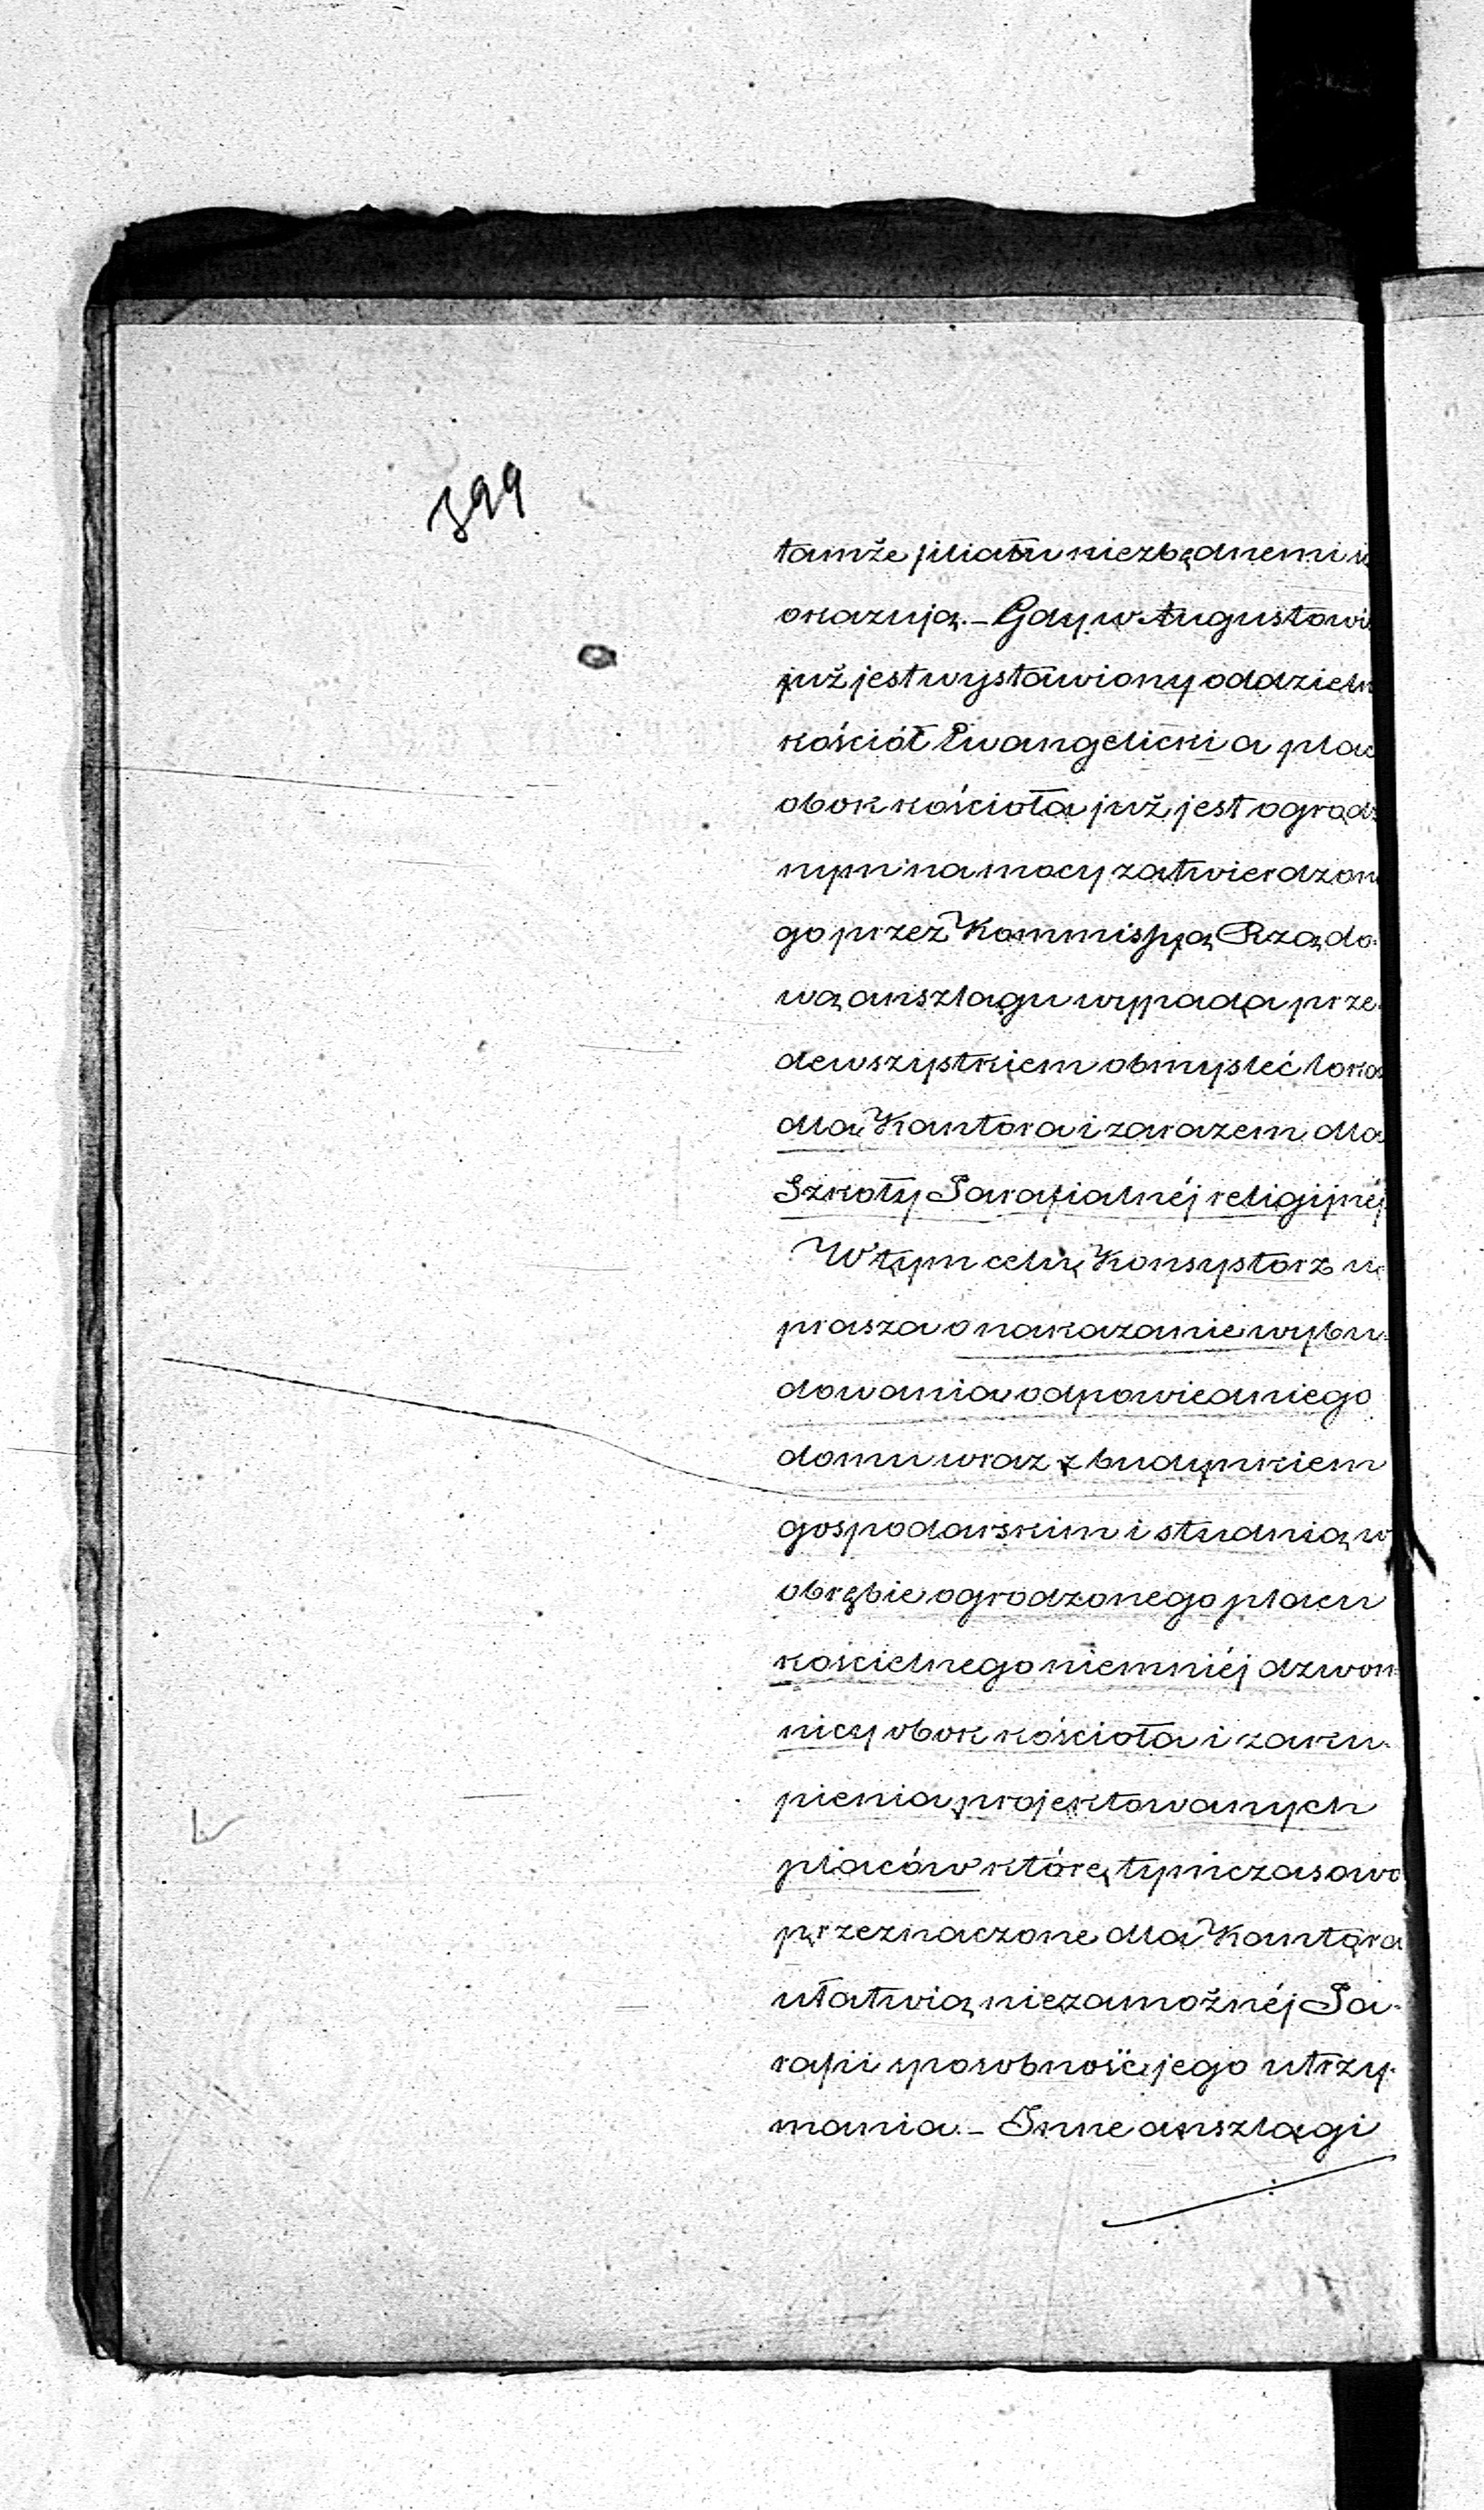 399
tamże filiału niezbędnemi
okazują. – Gdy w Augustowi
już jest wystawiony oddzieln
kościół Ewangelicki a plac
obok kościoła już jest ogrodz
nym na mocy zatwierdzon
go przez Kommissyą Rządo-
wą anszlagu wypada prze-
dewszystkiem obmysleć loka
dla Kantora i zarazem dla
Szkoły Parafialnéj religijnéj
W tym celu Konsystorz u-
prasza o nakazanie wybu-
dowania odpowiedniego
domu wraz z budynkiem
gospodarskim i studnią w
obrębie ogrodzonego placu
kościelnego niemniéj dzwon-
nicy obok kościoła i zaku-
pienia projektowanych
placów które tymczasowo
przeznaczone dla Kantora
ułatwią niezamożnéj Pa-
rafii sposobność jego utrzy-
mania. – Inne anszlagi